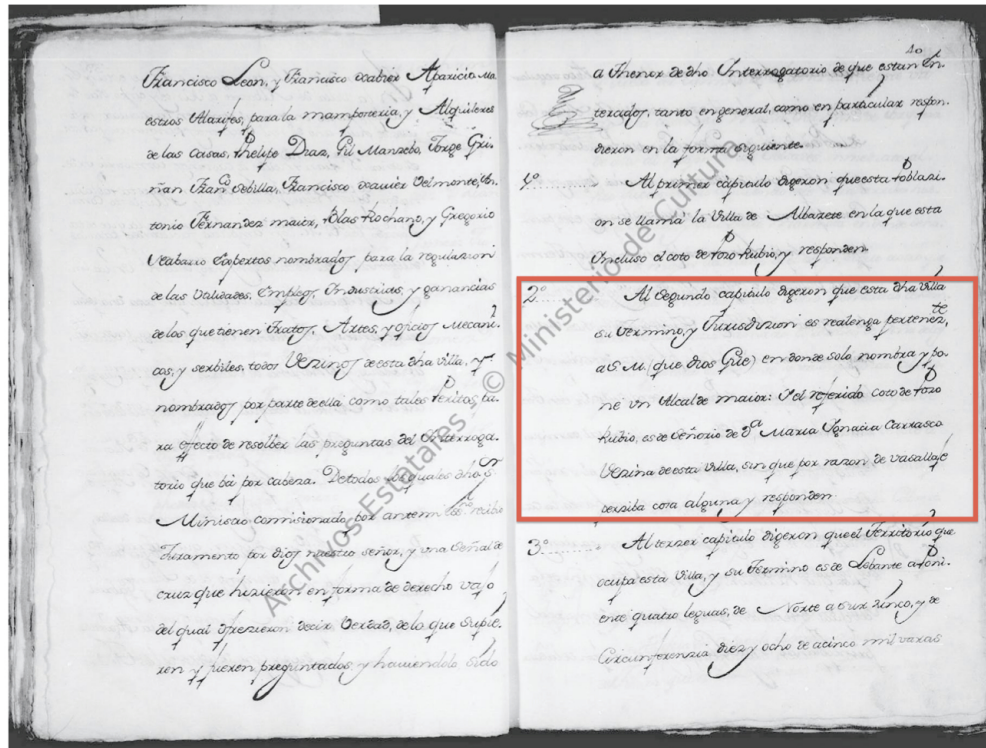 Francisco Leon, y Francisco Xabier Aparicio Ma
estros Alarifes, para la mamposteria, y Alquileres
de las Casas, Phelipe Diaz, Gil Manzebo, Jorge Gri
ñan Fran.co Sebilla, Francisco Xauier Delmonte, An
tonio Fernandez maior, Blas Rochano, y Gregorio
expertos nombrados para la regulazion
de las Vtilidades, Empleos, Industrias, y ganancias
de los que tienen Tratos, Artes, y ofizios Mecani
cos, y serbiles, todos Vezinos de esta dha Villa, y
nombrados por parte de ella como tales Peritos, pa
ra efecto de resolber las preguntas del Interroga
torio que bá por cabeza. De todos los quales dho S.r
Ministro comisionado, por antemi el ess.no recibio
Juramento por dios nuestro señor, y una Señal de
cruz que hizieron en forma de derecho vajo
del qual ofrezieron dezir Verdad, de lo que Supie
ren y fueren preguntados, y hauiendolo sido
40
a Thenor de dho Interrogatorio de que estan En
terados, tanto en general, como en particular respon
dieron en la forma siguiente.
1º Al primer capitulo digeron que esta Poblazi
on se llama la Villa de Albazete en la que esta
Yncluso el coto de Pozo Rubio, y responden
2º Al segundo capitulo digeron que esta dha Villa
su Termino, y Jurisdizion es realenga pertenez.te
a S. M. (que dios G.üe) en donde solo nombra y po
ne vn Alcalde maior: Y el referido Coto de Pozo
Rubio, es de Señorio de D.a Maria Ignazia Carrasco
Vezina de esta Villa, sin que por razon de vasallaje
perziba cosa alguna y responden
3º Al terzer capitulo digeron que el Territorio que
ocupa esta Villa, y su Termino es de Lebante a Poni
ente quatro leguas, de Norte a Sur zinco, y de
Circunferenzia diez y ocho de a cinco mil varas
Archivos Estatales © Ministerio de Cultura